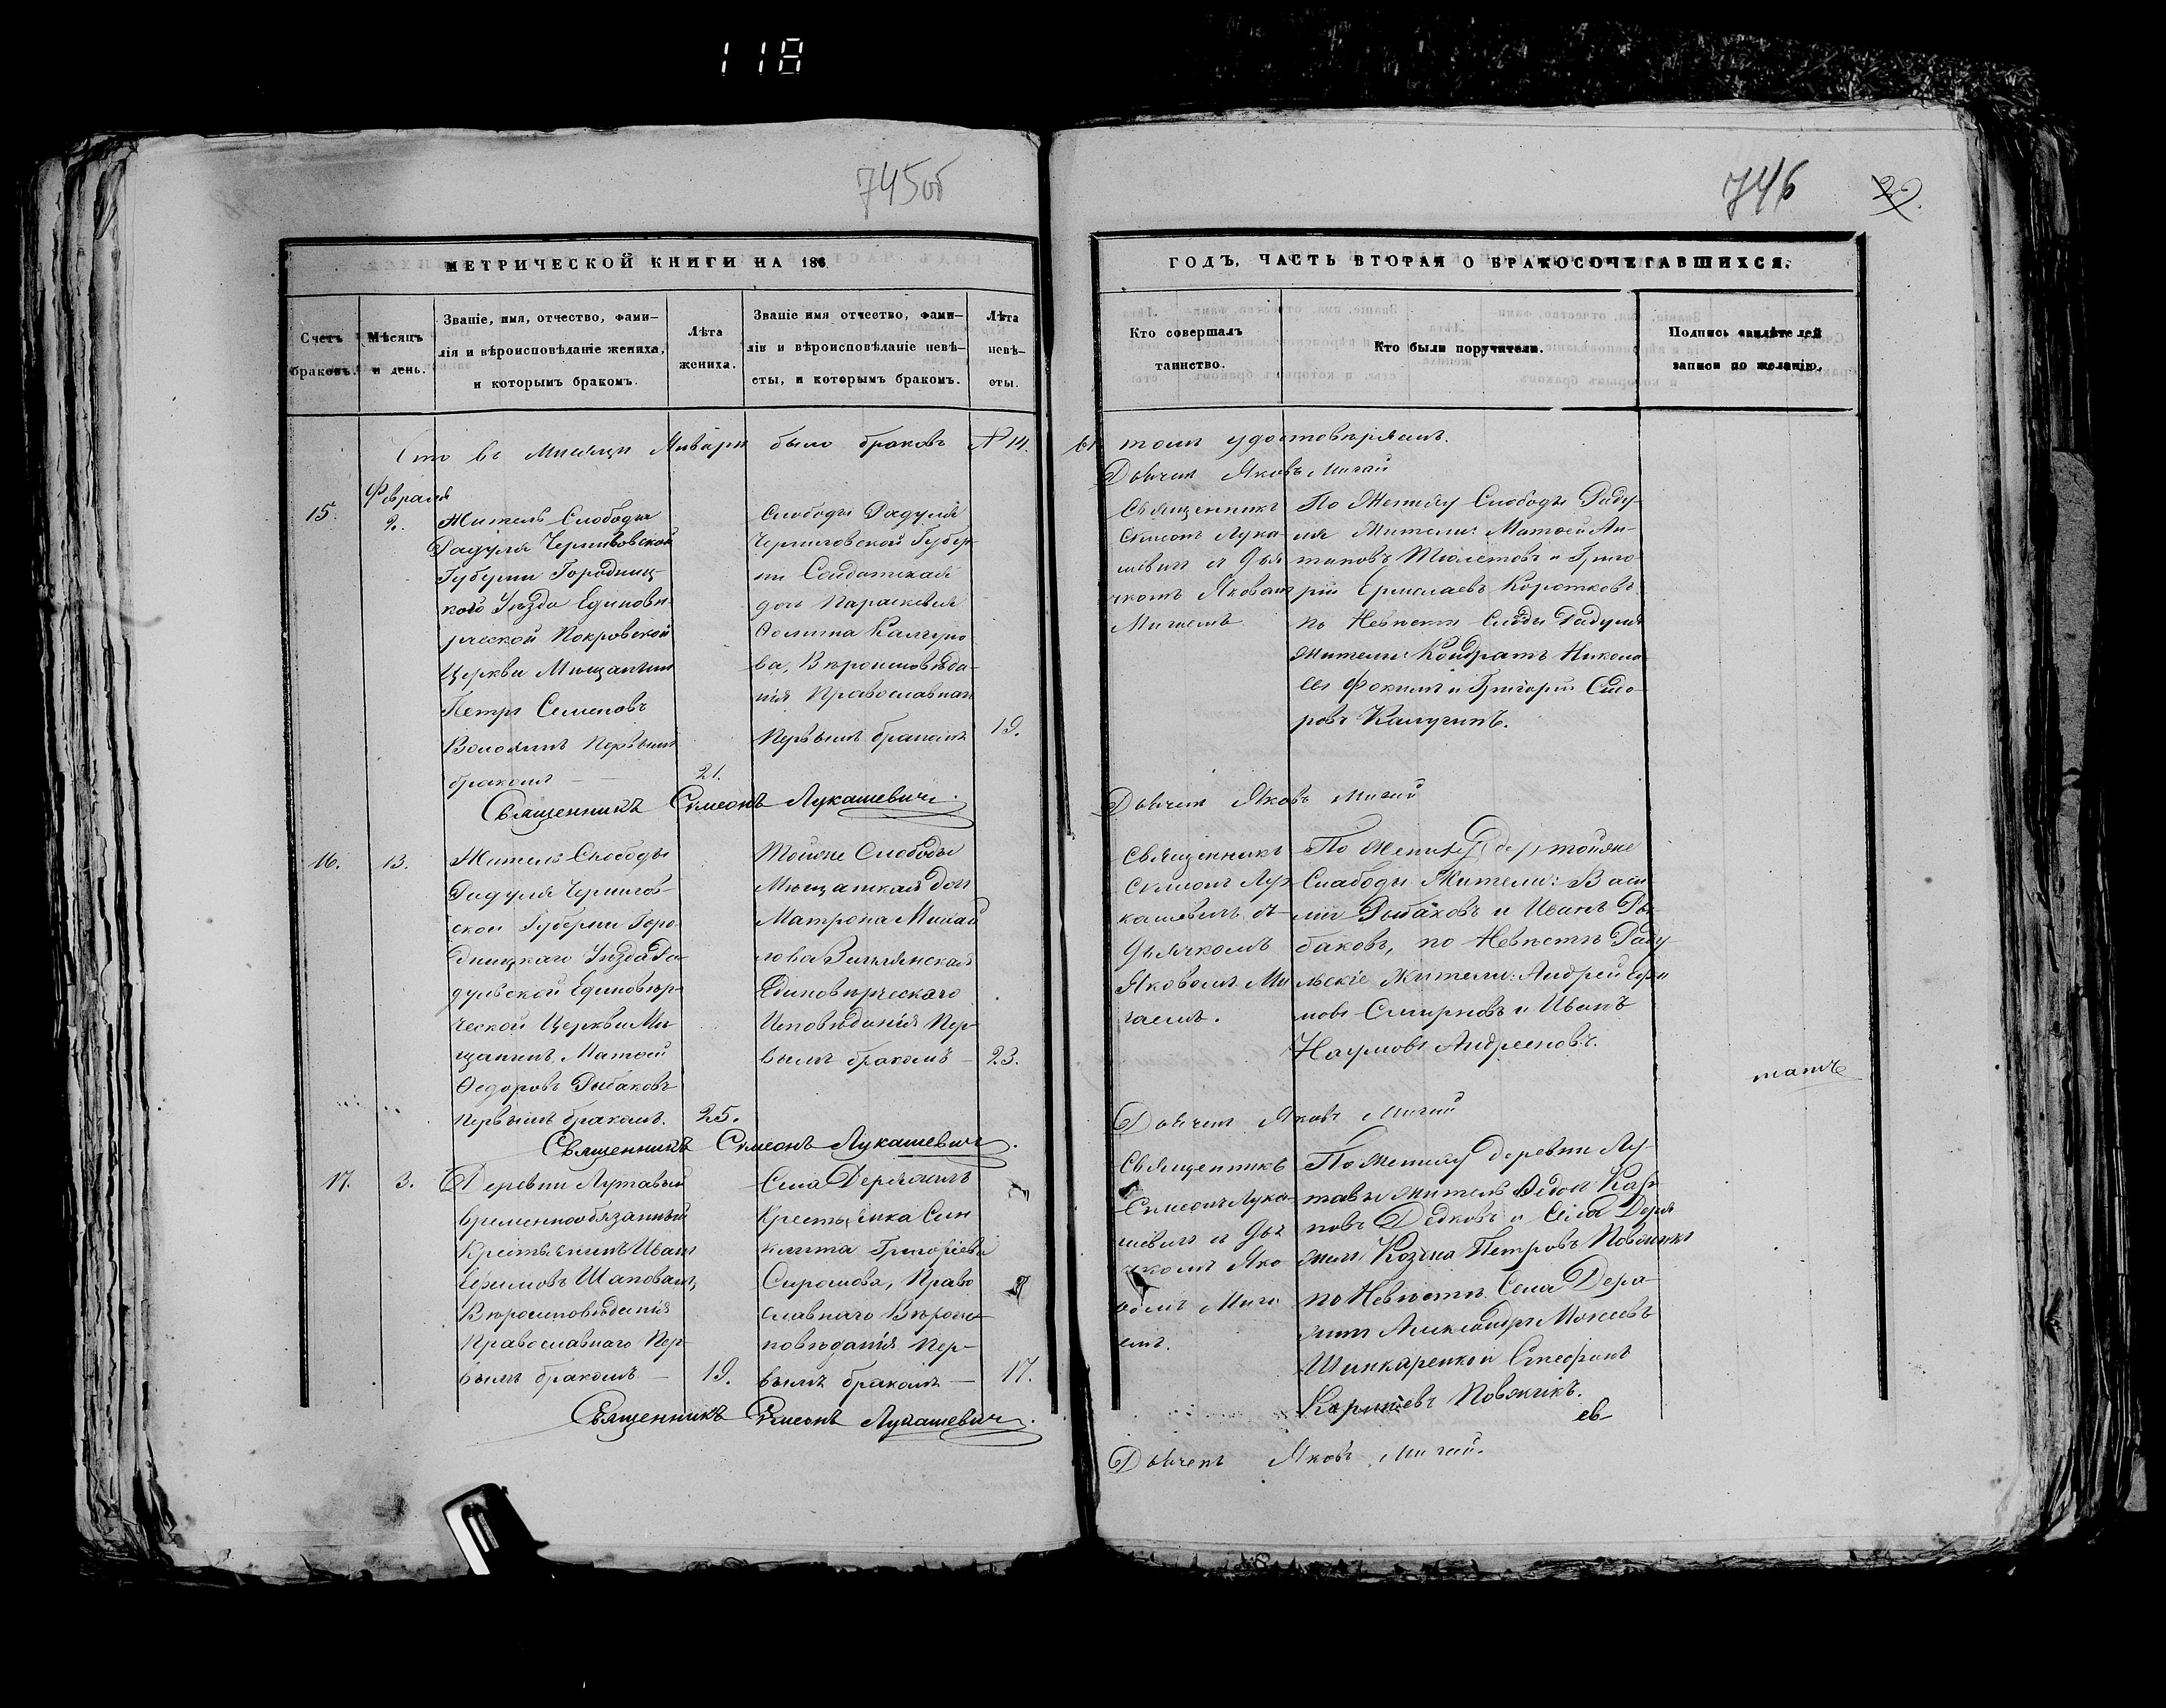 118
745об
746
МЕТРИЧЕСКОЙ КНИГИ НА 186
ГОДЪ, ЧАСТЬ ВТОРАЯ О БРАКОСОЧЕТАВШИХСЯ.
Счетъ браковъ.
Мѣсяцъ и день.
Званіе, имя, отчество, фами-
лія и вѣроисповѣданіе жениха,
и которымъ бракомъ.
Лѣта
жениха.
Званіе имя отчество, фами-
лія и вѣроисповѣданіе невѣ-
сты, и которымъ бракомъ.
Лѣта
невѣ-
сты.
Кто совершалъ
таинство.
Кто были поручители.
Подпись свидѣтелей
записи по желанію.
Что въ Мисяци Января было браковъ № 14.
въ томъ удостовѣряемъ.
Дьячекъ Яковъ Мигай
15.
Февраля
2.
Житель Слободы
Радуля Черниговской
Губерни Городниц-
кого Уѣзда Единовѣ-
рческой Покровской
Церкви Мѣщанинъ
Петръ Семеновъ
первымъ
бракомъ —
21.
Слободы Радуля
Черниговской Губер
ни Солдатская
дочь Параскевія
Фомина
ва, Вѣроисповѣда-
нія Православнаго
Первымъ бракомъ
19.
Священникъ
Симеонъ Лука
шевичъ съ Дья
чкомъ Яковомъ
Мигаемъ
По Жениху Слободы Раду-
ля Жители: Матвей
и Григо
рій Ермолаевъ Коротковъ
по Невѣсти Слобды Радуля
жители: Кондратъ Никола
евъ Фокинъ и Григорій Сидо
ровъ Калугинъ.
Священникъ Симеонъ Лукашевичъ.
Дьячекъ Яковъ Мигай
16.
13.
Житель Слободы
Радуля Чернигов-
ской Губерни Горо
дницкаго Уѣзда Ра-
дульской Единовѣр-
ческой Церкви Мѣ
щанинъ Матвей
Федоровъ Рыбаковъ
первымъ бракомъ.
25.
Тойже Слободы
Мѣщанская дочь
Матрона Михай
лова
Единовѣрческаго
Исповѣданія Пер-
вымъ бракомъ —
23.
Священникъ
Симеонъ Лу-
кашевичъ съ
Дьячкомъ
Яковомъ Ми
гаемъ.
По Жениху тойже
Слабоды Жители: Васи
лій Рыбаковъ и Иванъ Ры-
баковъ, по Невѣсти Раду
льскіе Жители: Андрей
мовъ Смирновъ и Иванъ
Наумовъ Андреяновъ.
Священникъ Симеонъ Лукашевичъ.
Дьячекъ Яковъ Мигай
17.
3.
Деревни Лутавы
временнообязанный
Крестьянинъ Иванъ
Ефимовъ Шаповалъ,
Вѣроисповѣданія
Православнаго Пер-
вымъ бракомъ —
19.
Села Деражичъ
Крестьянка Син
клита Григоріева
Сирошова, Право
славнаго Вѣроис-
повѣданія Пер-
вымъ бракомъ —
17.
Священникъ
Симеонъ Лука-
шевичъ съ Дья
чкомъ Яко
вомъ Мига
емъ.
По Жениху деревни Лу-
тавы житель Федоръ
повъ Дедковъ и Села Дера
жичъ Козма Петровъ
по Невѣсти Села Дера-
жичъ Александръ Моисеевъ
Шинкаренко и Стефанъ
Священникъ Симеонъ Лукашевичъ.
Дьячекъ Яковъ Мигай.